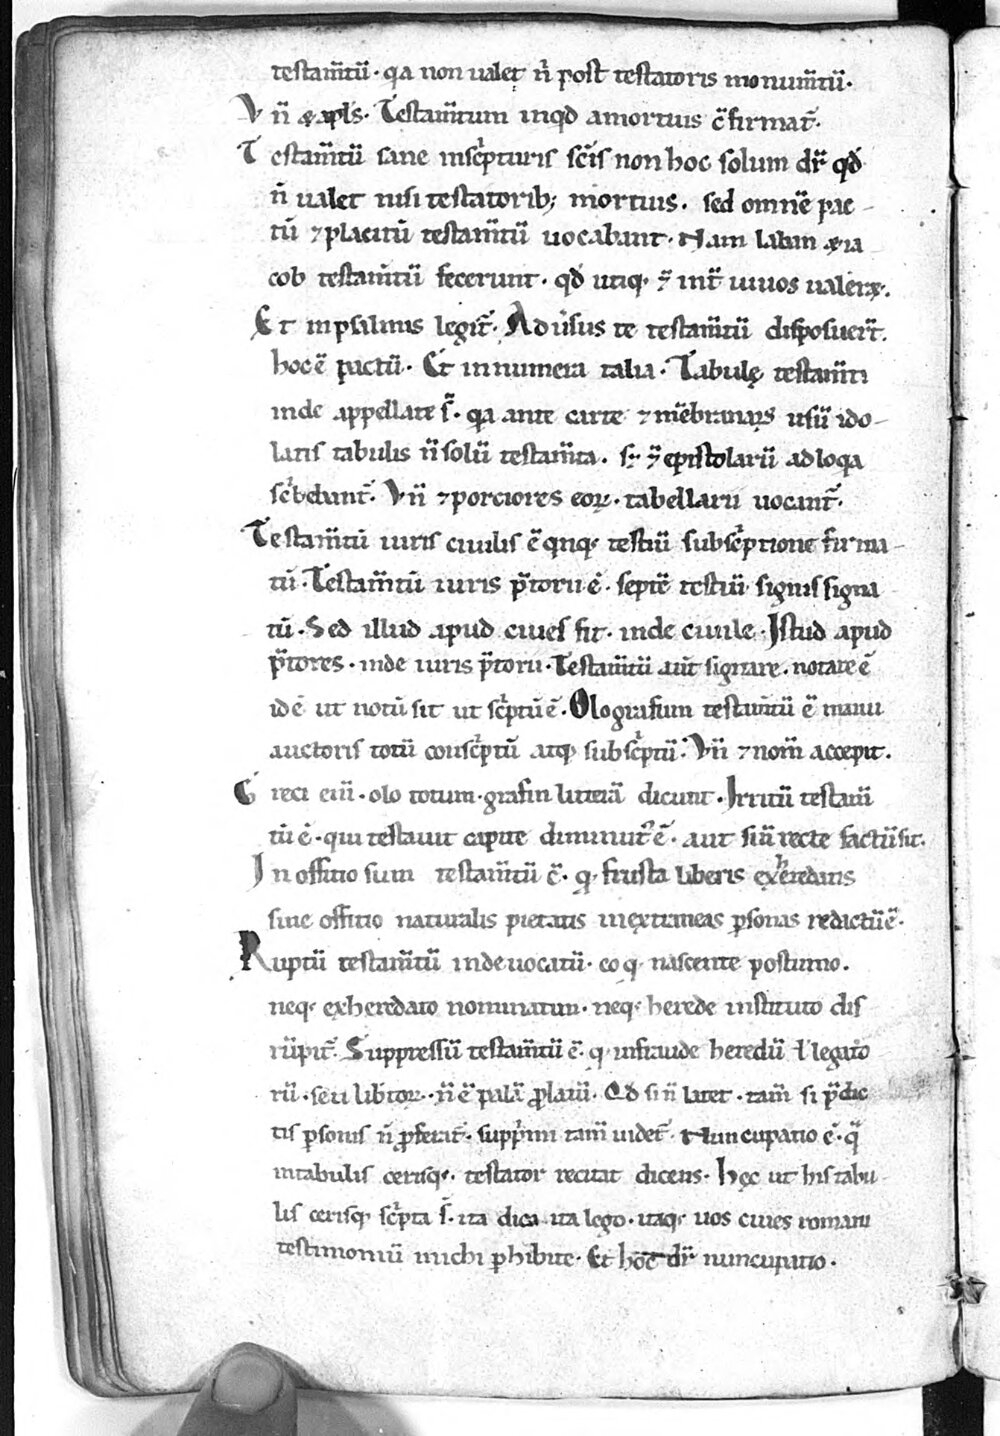 testam̅tu̅ · qa non ualet n̅ post testatoris monum̅tu̅ ·
Vn̅ & apls̅ · Testam̅tum inqd amortuis c̅firmat̅ ·
Testam̅tu̅ sane inscͥpturis sc̅is non hoc solum dr̅ qd̅
n̅ ualet nisi testatorib; mortuis . sed omne̅ pac-
tu̅ ⁊ placitu̅ testam̅tu̅ uocabant · Nam laban & ia
cob testam̅tu̅ fecerunt · qd̅ utiq · ⁊ int̅ uiuos ualer& .
Et inpsalmis legit̅ · Aduͥsus te testam̅tu̅ disposuer̅t .
hoc e̅ pactu̅ · Et innumera talia · Tabulę testam̅ti
inde appellate s̅ · qa ante carte ⁊ me̅branarͥs usu̅ ido-
latis tabulis n̅ solu̅ testam̅ta . s; ⁊ epistolaru̅ adloqa
scͥbebant̅ · Vn̅ ⁊ portitores eoꝝ · tabellarii uocant̅ ·
Testam̅tu̅ iuris ciuilis e̅ qͥnq · testiu̅ subscͥptione firma-
tu̅ · Testam̅tu̅ iuris p̅torii e̅ · septe̅ testiu̅ signis signa
tu̅ · Sed illud apud ciues fit · inde ciuile · Istud apud
p̅tores · inde iuris p̅torii · Testam̅tu̅ aut̅ signare · notare e̅
id e̅ ut notu̅ sit ut scͥptu̅ e̅ · Olografum testam̅tu̅ e̅ manu
auctoris totu̅ conscͥptu̅ atq subscͥptu̅ · Vn̅ ⁊ nom̅ accepit .
Greci eni̅ · olo totum · grafin littera̅ dicunt · Irritu̅ testam̅
tu̅ e̅ · qui testauit capite diminut᾿ e̅ · aut si n̅ recte factu̅ sit .
In offitio sum testam̅tu̅ e̅ · q · frusta liberis exheredatis
sine offitio naturalis pietatis inextraneas ꝑsonas redactu̅ e̅ ·
Ruptu̅ testam̅tu̅ inde uocatu̅ · eo q · nascente postumo .
neq · exheredato nominatim · neq · herede instituto dis
ru̅pit̅ · Suppressu̅ testam̅tu̅ e̅ · q · infraude heredu̅ ł legato
ru̅ · seu libtoꝝ · n̅ e̅ pala̅ ꝓlatu̅ · Qd̅ si n̅ latet · tam̅ si p̅dic
tis ꝑsonis n̅ ꝓferat̅ · supp̅mi tam̅ uidet̅ · Nuncupatio e̅ · qͣ
intabulis cerisq · testator recitat dicens · hęc ut his tabu-
lis cerisq scͥpta s̅ · ita dica ita lego · itaq · uos ciues romani
testimoniu̅ michi ꝑhibite · Et hoc dr̅ nuncupatio .